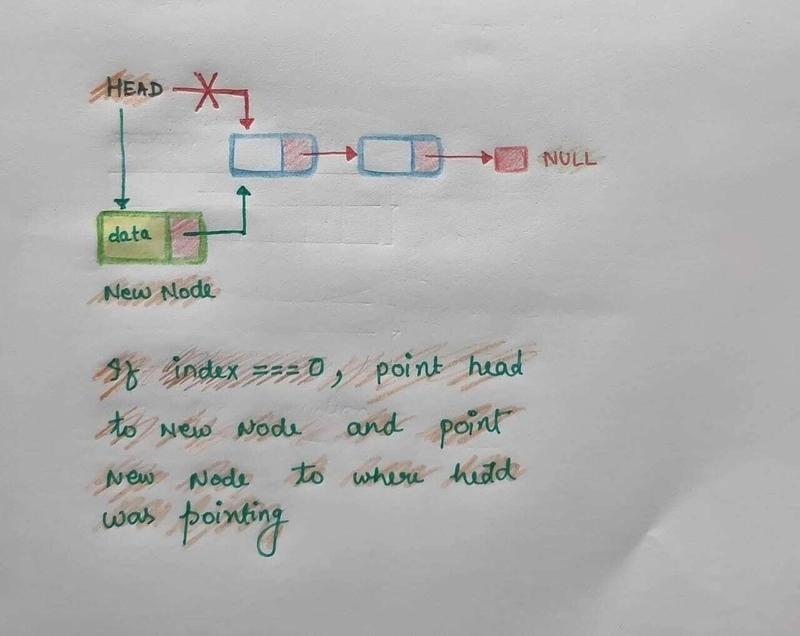 HEAD
NULL
data
New Node
If index === 0, point head
to New Node and point
New Node to where head
was pointing